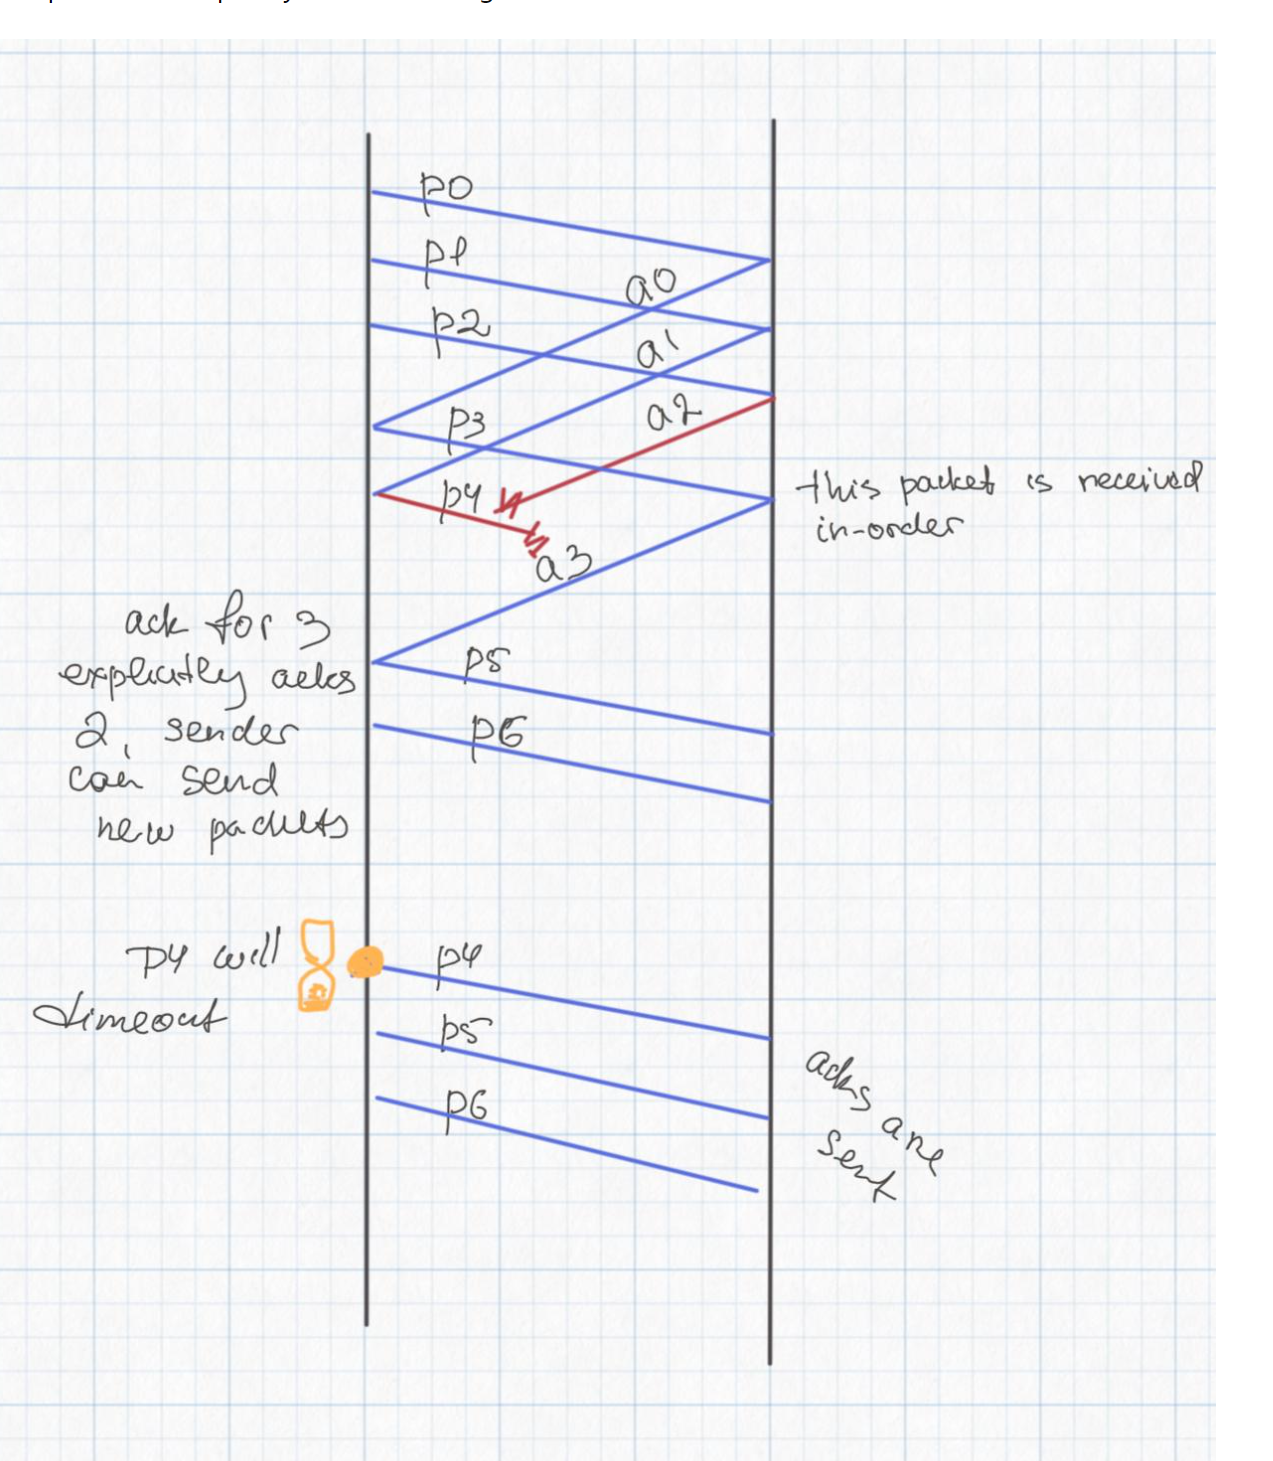 p0
p1
a0
p2
a1
a2
p3
p4
this packet is received
in-order
a3
ack for 3
explicitley acks
2, sender
can send
new packets
p5
p6
p4 will
timeout
p4
p5
p6
acks are
sent